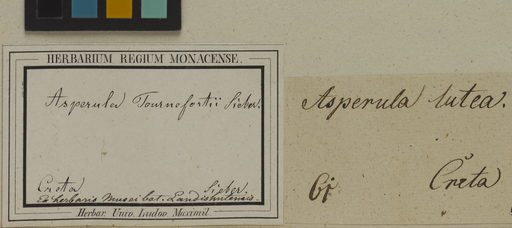 HERBARIUM REGIUM MONACENSE.
Asperula Tournefortii Sieber.
Creta Sieber.
Ex herbario Musei bot. Landishutensis.
Herbar. Univ. Ludov. Maximil.
Asperula lutea.
Creta